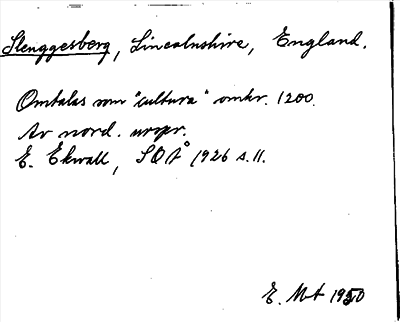 Slenggesberg, Lincolnshire, England.
Omtalas som "cultura" omkr. 1200.
Av nord. urspr.
E. Ekwall, SOÅ 1926 s. 11.
E. Mt 1950